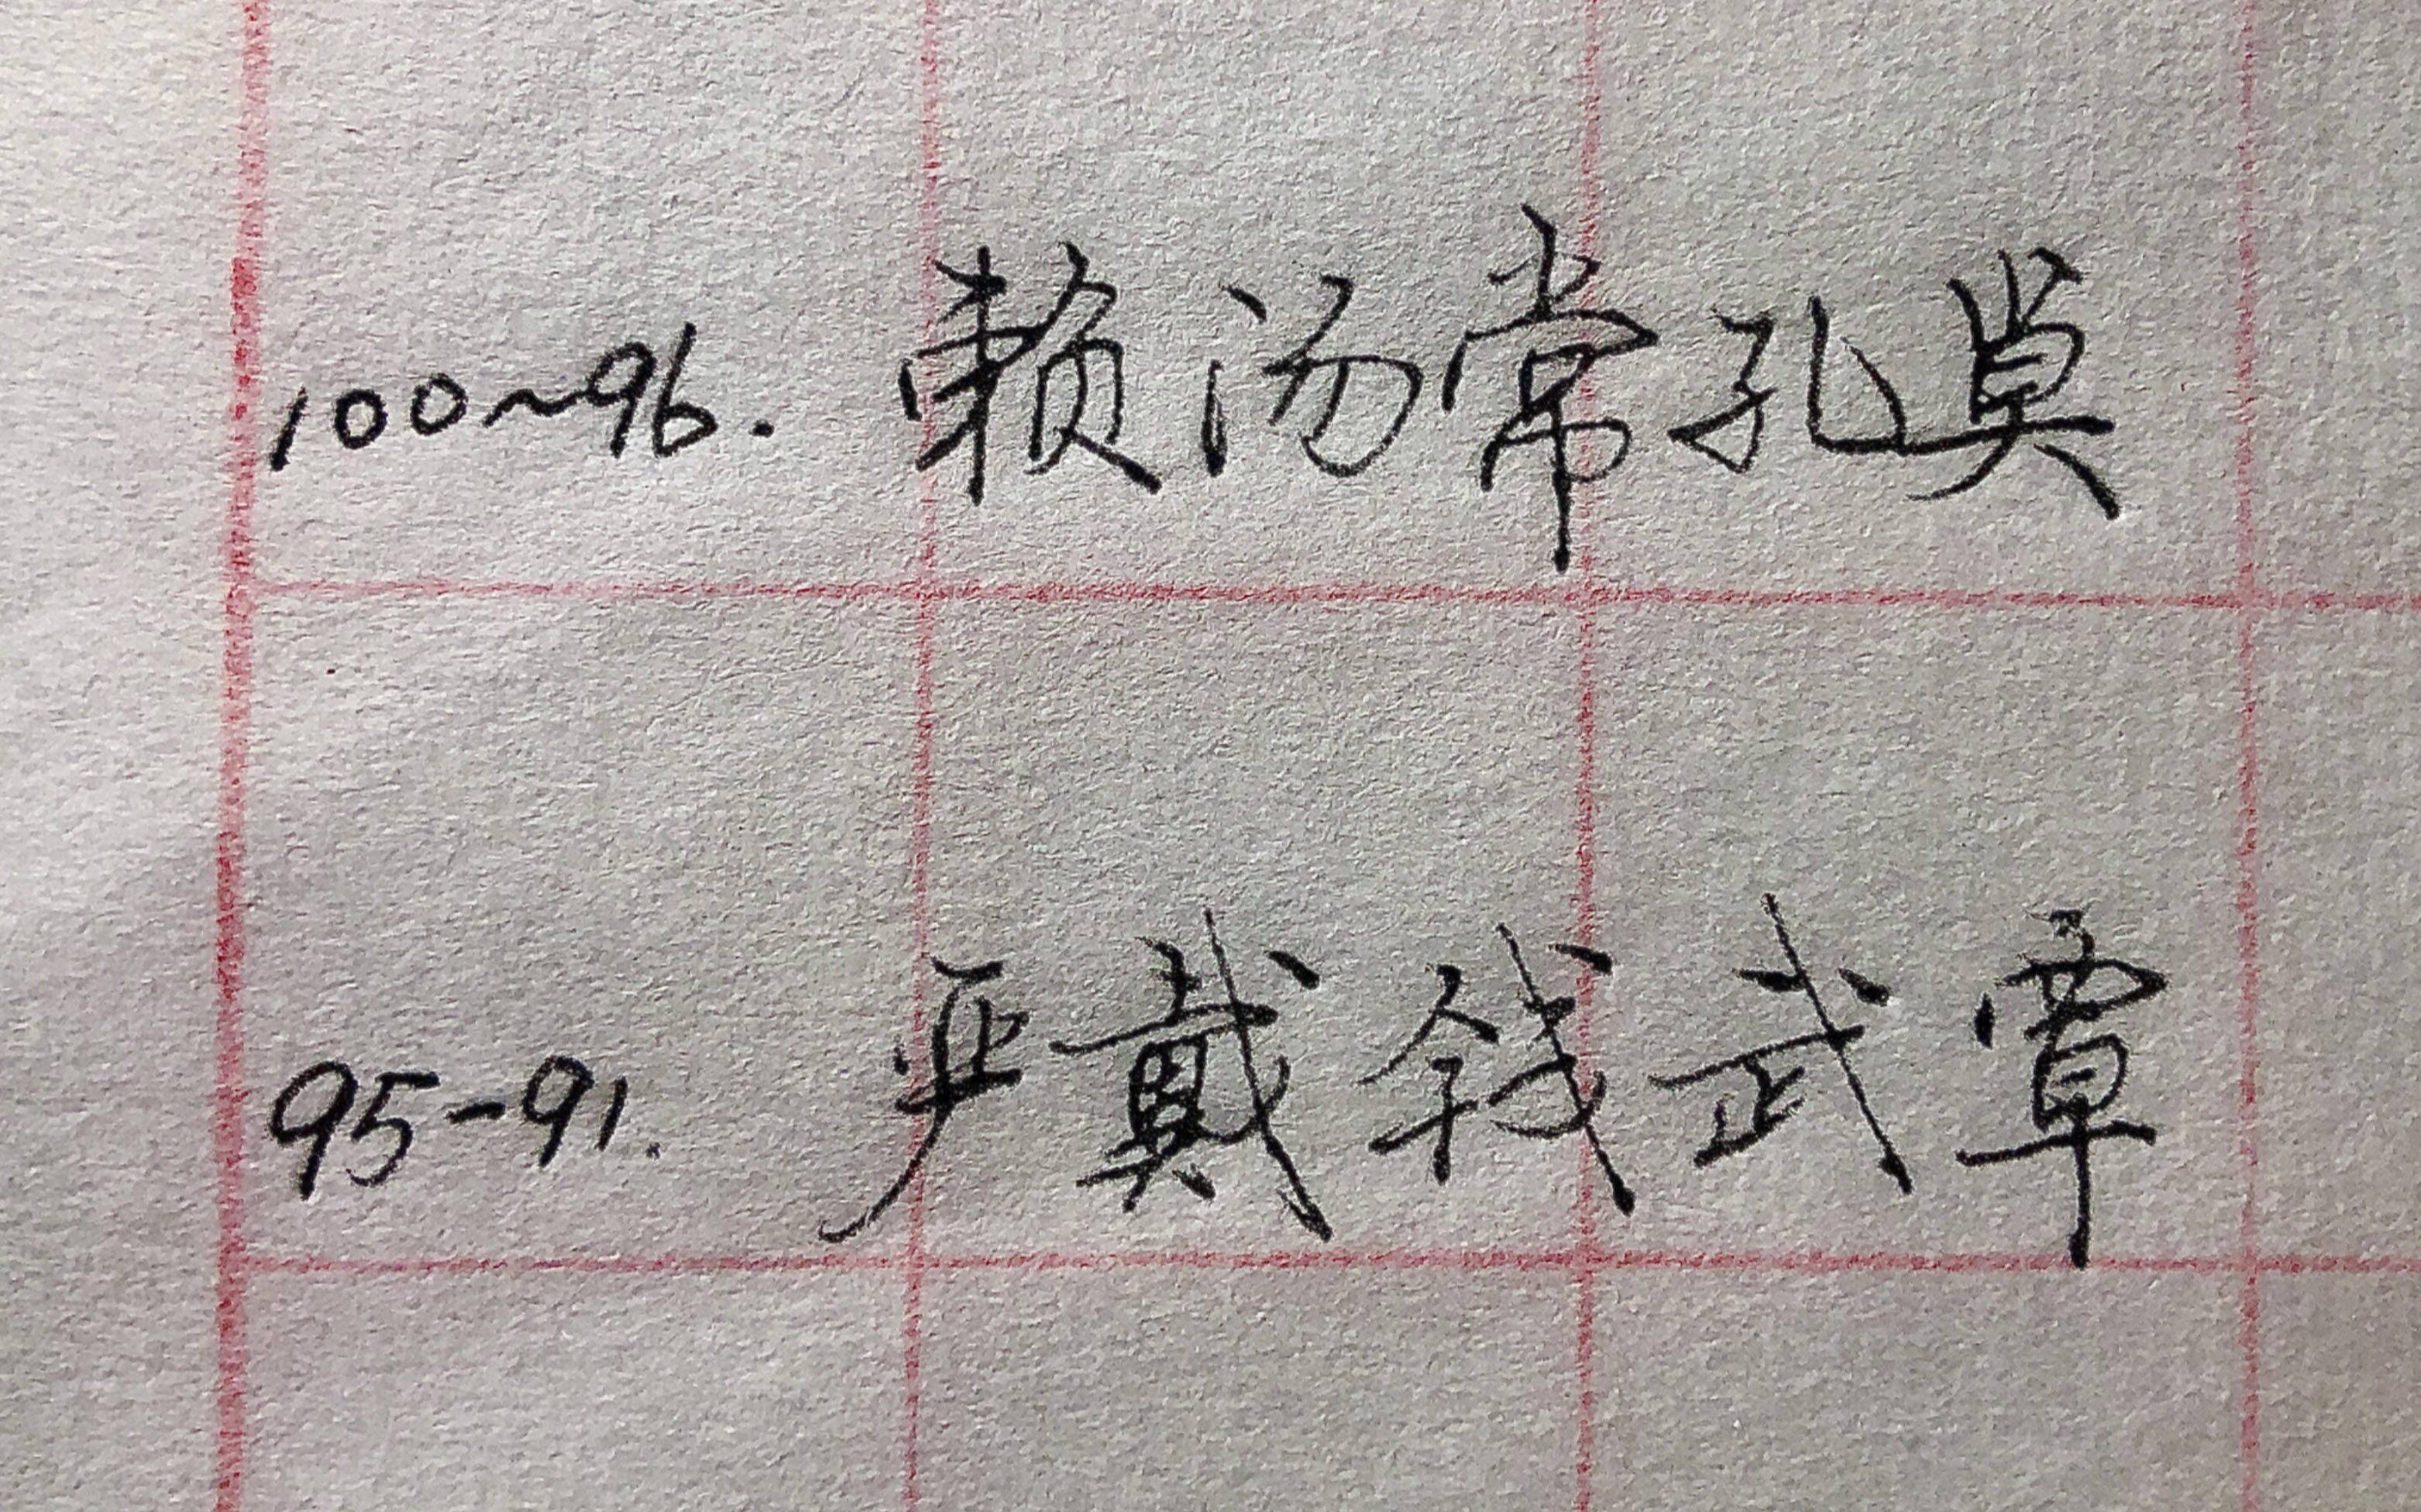 100~96. 赖汤常孔莫
95-91. 严戴钱武覃